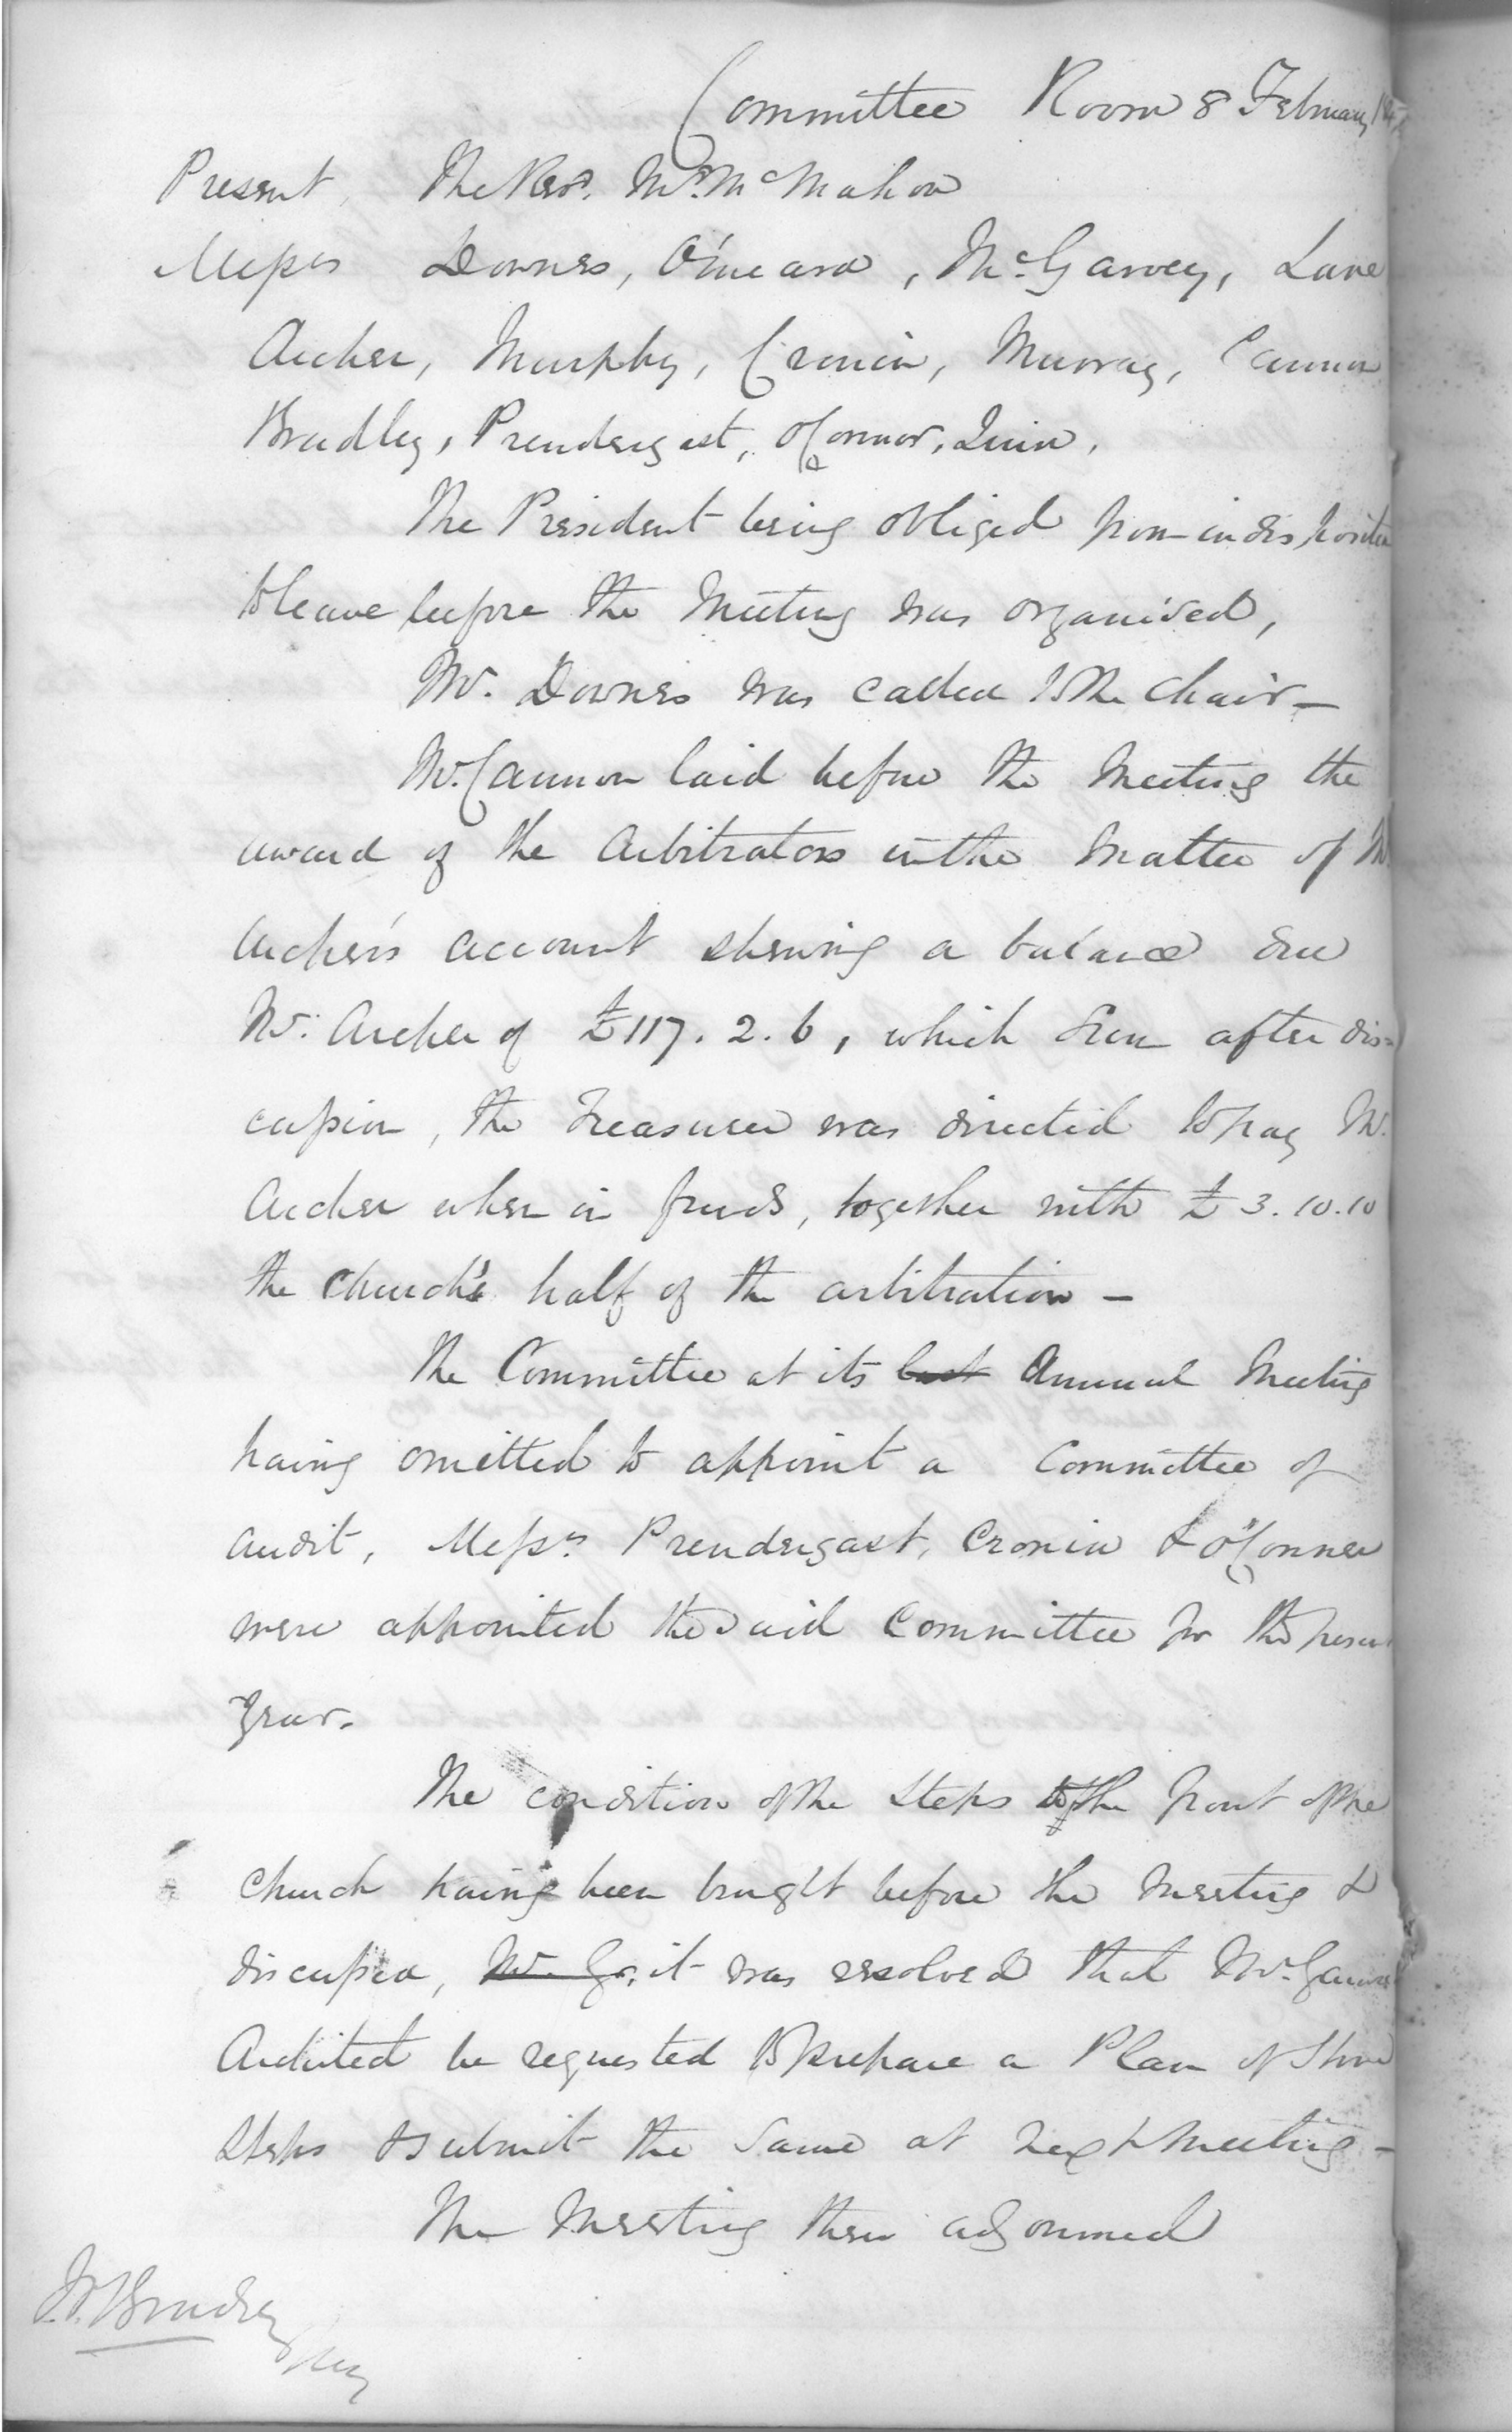 Committee Room 8 February
Present, The Revd. Mr. McMahon
Messrs Downes, O'Meara, McGarvey, Lane
Archer, Murphy, Cronin, Murray, Cannon
Bradley, Prendergast, O'Connor, Quin.
The President being obliged from indisposition
to leave before the Meeting was organised,
Mr. Downes was called to the chair —
Mr. Cannon laid before the Meeting the
award of the Arbitrators in the matter of Mr.
Archer's account shewing a balance due
Mr. Archer of £117. 2. 6, which sum after dis=
cussion, the Treasurer was directed to pay Mr.
Archer when in funds, together with £3. 10. 10
the Church's half of the arbitration —
The Committee at its last Annual Meeting
having omitted to appoint a Committee of
audit, Messrs. Prendergast, Cronin & O'Conner
were appointed the said Committee for the present
year.
The condition of the steps of the front of the
Church having been brought before the Meeting &
discussed, Mr. it was resolved that Mr.
Architect be requested to prepare a Plan of Stone
Steps & submit the same at next Meeting —
The Meeting then adjourned
Bradley
Secy